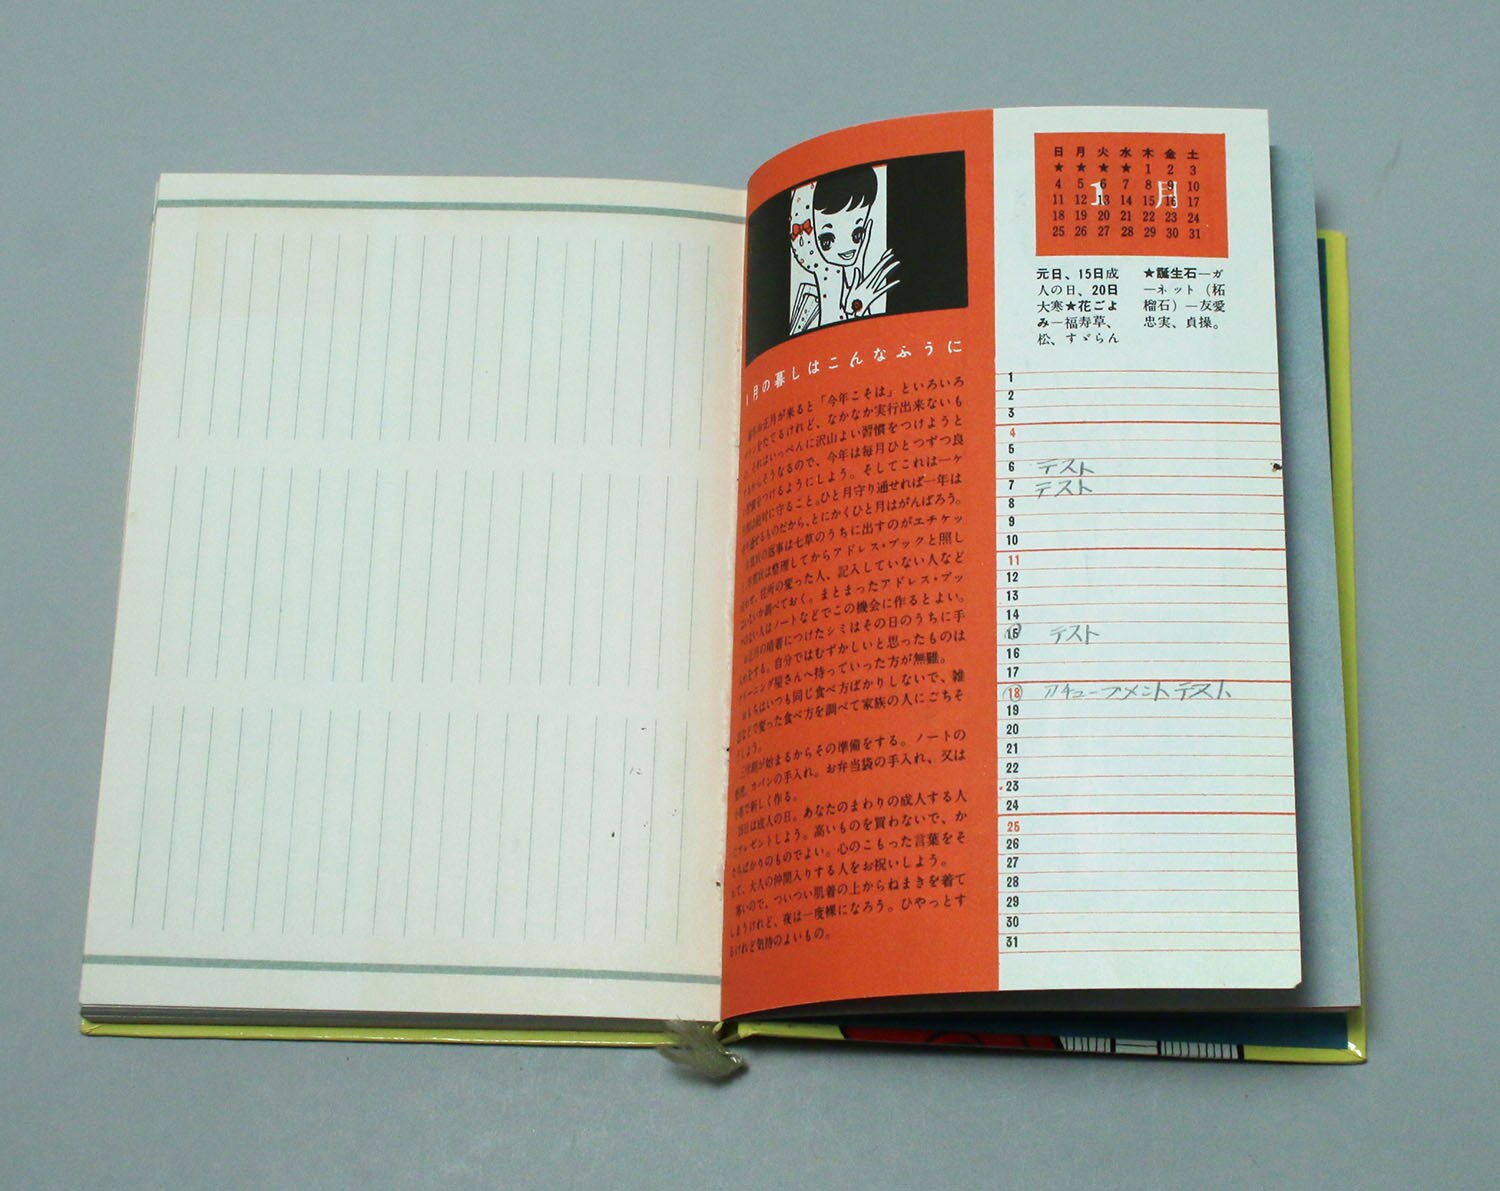 1月の暮しはこんなふうに
お正月が来ると「今年こそは」といろいろ
をたてるけれど、なかなか実行出来ないも
それはいっぺんに沢山よい習慣をつけようと
するからそうなるので、今年は毎月ひとつずつ良
い習慣をつけるようにしよう。そしてこれは一ケ
月間は絶対に守ること。ひと月守り通せれば一年は
守り通せるものだから、とにかくひと月はがんばろう。
年賀状の返事は七草のうちに出すのがエチケッ
年賀状は整理してからアドレス・ブックと照し
合わせ、住所の変った人、記入していない人など
ないか調べておく。まとまったアドレス・ブッ
クのない人はノートなどでこの機会に作るとよい。
お正月の晴着につけたシミはその日のうちに手
入れをする。自分ではむずかしいと思ったものは
クリーニング屋さんへ持っていった方が無難。
おもちはいつも同じ食べ方ばかりしないで、雑
誌などで変った食べ方を調べて家族の人にごちそ
うしよう。
三学期が始まるからその準備をする。ノートの
整理、カバンの手入れ。お弁当袋の手入れ、又は
で新しく作る。
15日は成人の日。あなたのまわりの成人する人
にプレゼントしよう。高いものを買わないで、か
たちばかりのものでよい。心のこもった言葉をそ
えて、大人の仲間入りする人をお祝いしよう。
寒いので、ついつい肌着の上からねまきを着て
しまうけれど、夜は一度裸になろう。ひやっとす
るけれど気持のよいもの。
1月
日 月 火 水 木 金 土
★ ★ ★ ★ 1 2 3
4 5 6 7 8 9 10
11 12 13 14 15 16 17
18 19 20 21 22 23 24
25 26 27 28 29 30 31
元日、15日成
人の日、20日
大寒★花ごよ
み―福寿草、
松、すゞらん
★誕生石―ガ
ーネット（柘
榴石）―友愛
忠実、貞操。
1
2
3
4
5
6 テスト
7 テスト
8
9
10
11
12
13
14
15 テスト
16
17
18 アチューブメントテスト
19
20
21
22
23
24
25
26
27
28
29
30
31